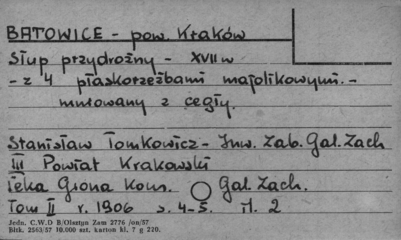 BATOWICE - pow. Kraków
Słup przydrożny - XVII w
- z 4 płaskorzeźbami majolikowymi. -
murowany z cegły.
Stanisław Tomkowicz - Inw. Zab. Gal. Zach
III Powiat Krakowski
Teka Grona Kons. Gal. Zach.
Tom II r. 1906 s. 4-5. fl. 2
Jedn. C.W.D B/Olsztyn Zam 2776 /on/57
Błtk. 2563/57 10.000 szt. karton kl. 7 g 220.